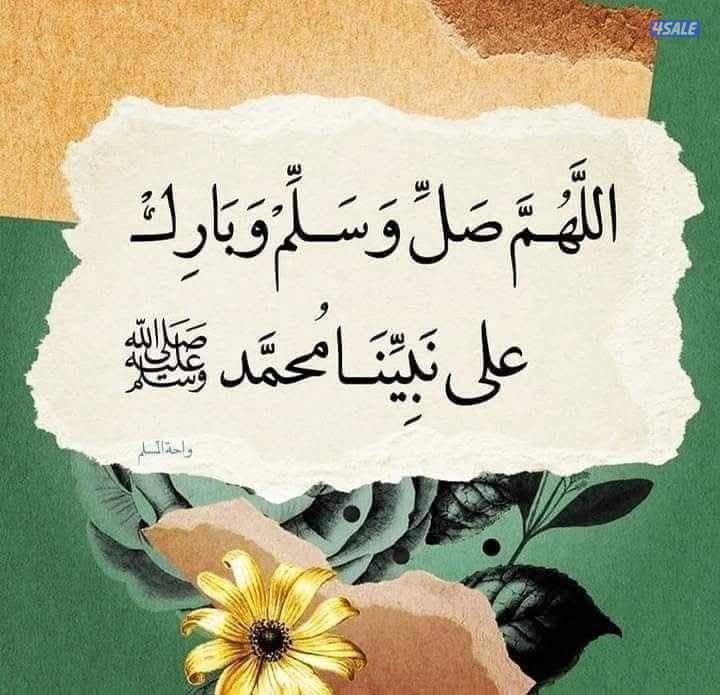 4SALE
اللَّهُمَّ صَلِّ وَسَلِّمْ وَبَارِكْ
على نَبِيِّنَا مُحمَّد ﷺ
واحة المسلم